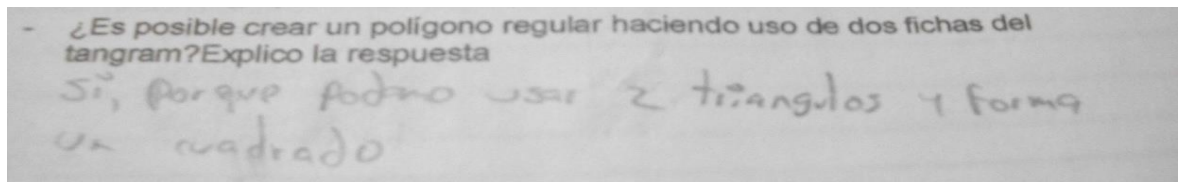 - ¿Es posible crear un polígono regular haciendo uso de dos fichas del
tangram?Explico la respuesta
Si, porque podmo usar 2 triangulos y forma
un cuadrado